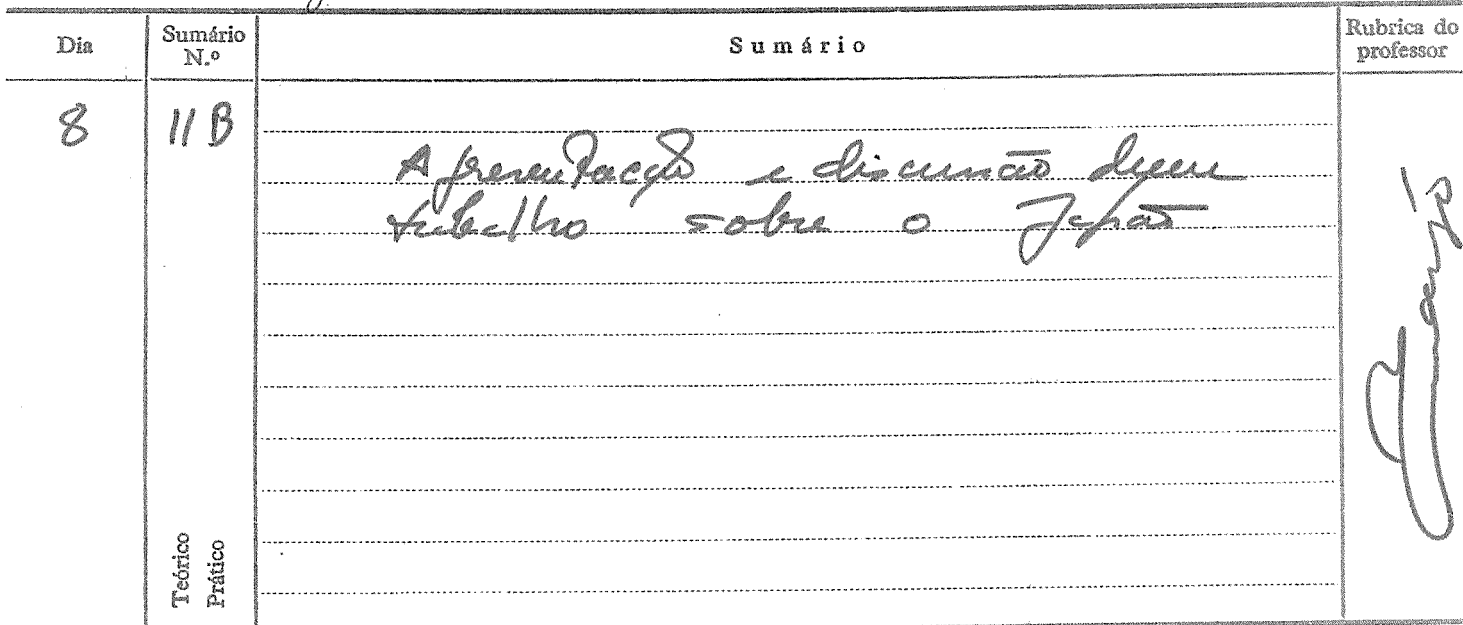 Dia
Sumário
N.º
Sumário
Rubrica do
professor
8
11 B
Apresentação e discussão dum
trabalho sobre o Japão
Teórico
Prático